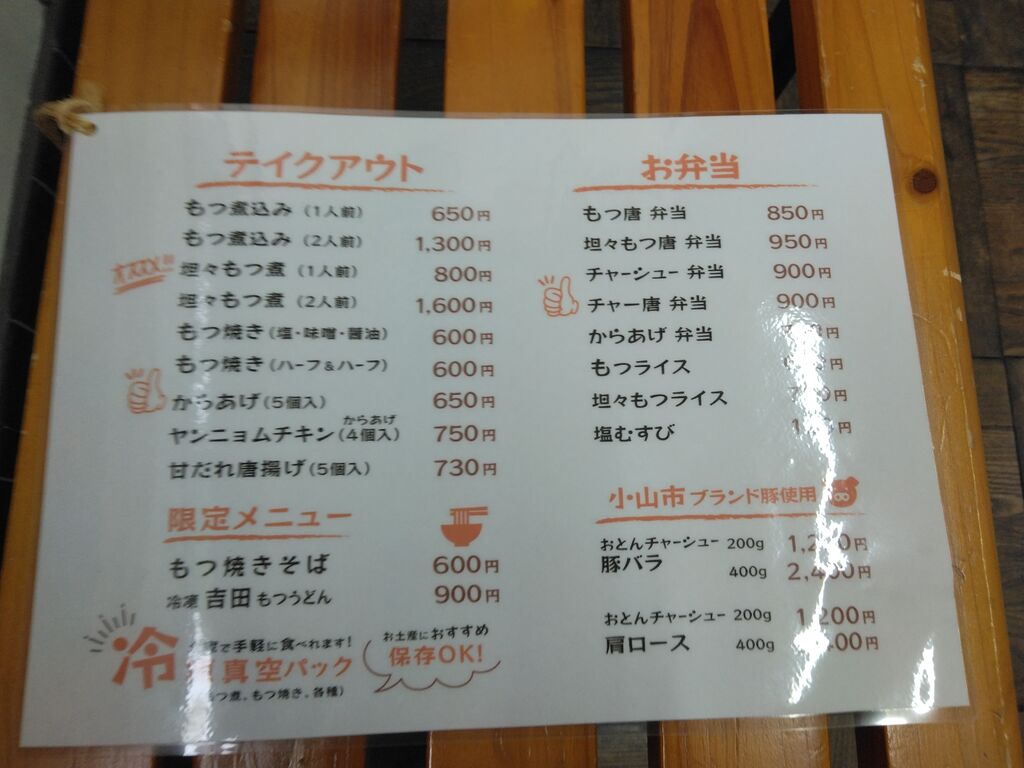 テイクアウト
もつ煮込み (1人前) 650円
もつ煮込み (2人前) 1,300円
オススメ!!
坦々もつ煮 (1人前) 800円
坦々もつ煮 (2人前) 1,600円
もつ焼き (塩・味噌・醤油) 600円
もつ焼き (ハーフ&ハーフ) 600円
からあげ (5個入) 650円
からあげ
ヤンニョムチキン (4個入) 750円
甘だれ唐揚げ (5個入) 730円
限定メニュー
もつ焼きそば 600円
冷凍 吉田もつうどん 900円
冷
で手軽に食べれます!
真空パック
つ煮、もつ焼き、各種)
お土産におすすめ
保存OK!
お弁当
もつ唐 弁当 850円
坦々もつ唐 弁当 950円
チャーシュー 弁当 900円
チャー唐 弁当 900円
からあげ 弁当 円
もつライス
坦々もつライス 円
塩むすび 円
小山市 ブランド豚使用
おとんチャーシュー 200g 円
豚バラ 400g 2,400円
おとんチャーシュー 200g 1,200円
肩ロース 400g 円